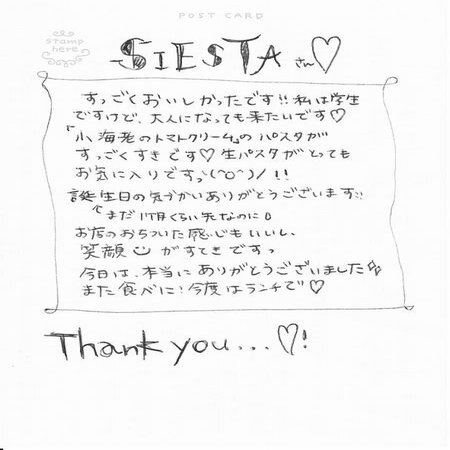 POST CARD
stamp here
SIESTAさん♡
すっごくおいしかったです!!私は学生
ですけど、大人になっても来たいです♡
「小海老のトマトクリーム」の パスタが
すっごくすきです♡生パスタがとっても
お気に入りですヽ(^o^)ノ!!
誕生日の気づかいありがとうございます!!
まだ 1ヶ月くらい先なのに
お店のおちついた感じもいいし、
笑顔☺がすてきですっ
今日は、本当にありがとうございました
また食べに!今度はランチで♡
Thank you...♡!